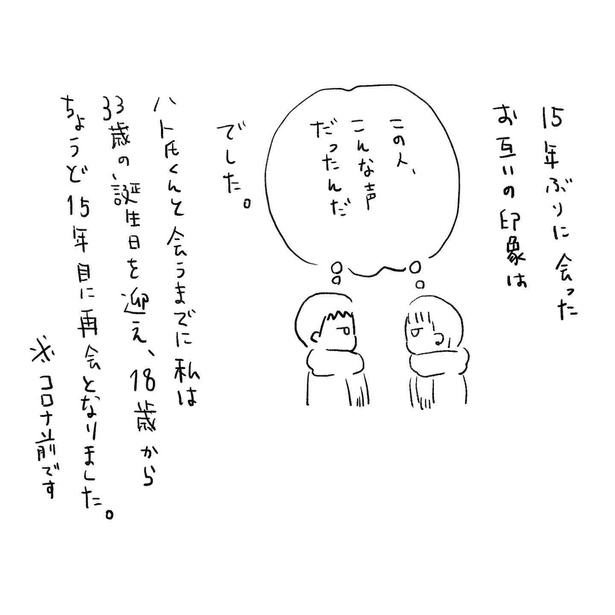 15年ぶりに会った
お互いの印象は
この人、
こんな声
だったんだ
でした。
ハト氏くんと会うまでに私は
33歳の誕生日を迎え、18歳から
ちょうど15年目に再会となりました。
※コロナ前です